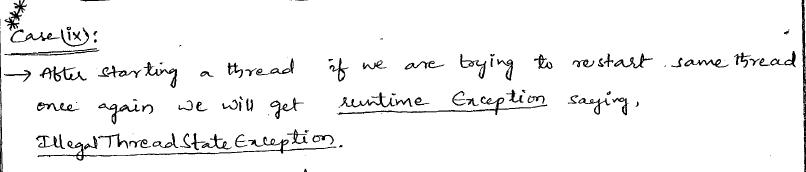 *** Case (ix):
→ After starting a thread if we are trying to restart same thread
once again we will get runtime Exception saying,
IllegalThreadStateException.